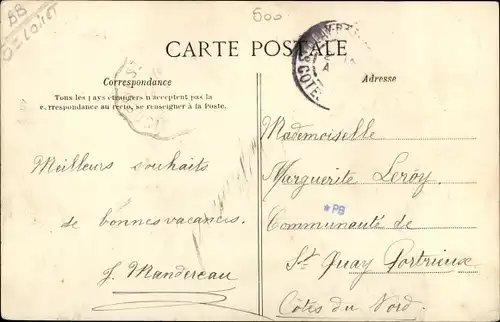 BB
500
CARTE POSTALE
Correspondance
Tous les pays étrangers n'acceptent pas la
correspondance au recto, se renseigner à la Poste.
Meilleurs souhaits
de bonnes vacances.
J. Mandereau
Adresse
Mademoiselle
Marguerite Leroy.
*PB
Communauté de
St Quay Portrieux
Côtes du Nord.